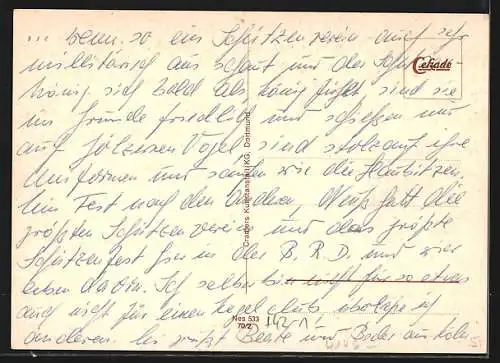 ... wenn so ein Schützenverein auch sehr
militärisch aus schaut und der Schützen-
könig sich bald als König fühlt sind sie
im Grunde friedlich und schießen nur
auf hölzernen Vogel sind stolz auf ihre
Uniformen und saufen wie die Haubitzen.
Ein Fest nach dem anderen, Neuß hat die
größten Schützenverein und das größte
Schützenfest hier in der B.R.D. und wir
leben darin. Ich selber bin nicht für so etwas
auch nicht für einen Kegelclub überlasse ich
anderen. Es grüßt Beate und
Cekade
Cramers Kunstanstalt KG, Dortmund
Nes 533
70/2